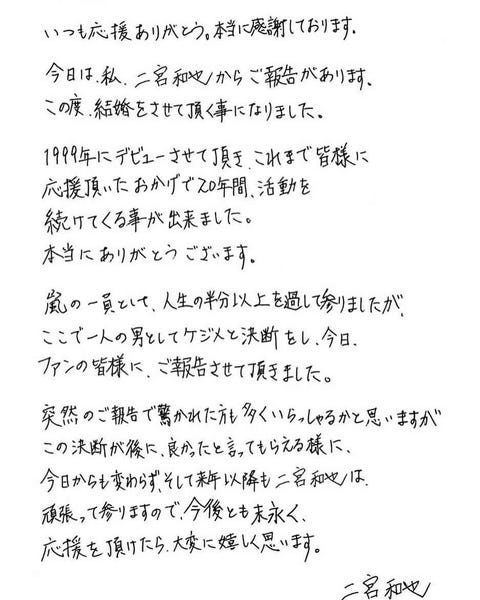 いつも応援ありがとう。本当に感謝しております。
今日は、私、二宮和也からご報告があります。
この度、結婚をさせて頂く事になりました。
1999年にデビューさせて頂き、これまで皆様に
応援頂いたおかげで20年間、活動を
続けてくる事が出来ました。
本当にありがとうございます。
嵐の一員として、人生の半分以上を過して参りましたが、
ここで一人の男としてケジメと決断をし、今日、
ファンの皆様に、ご報告させて頂きました。
突然のご報告で驚かれた方も多くいらっしゃるかと思いますが
この決断が後に、良かったと言ってもらえる様に、
今日からも変わらず、そして来年以降も二宮和也は、
頑張って参りますので、今後とも末永く、
応援を頂けたら、大変に嬉しく思います。
二宮和也